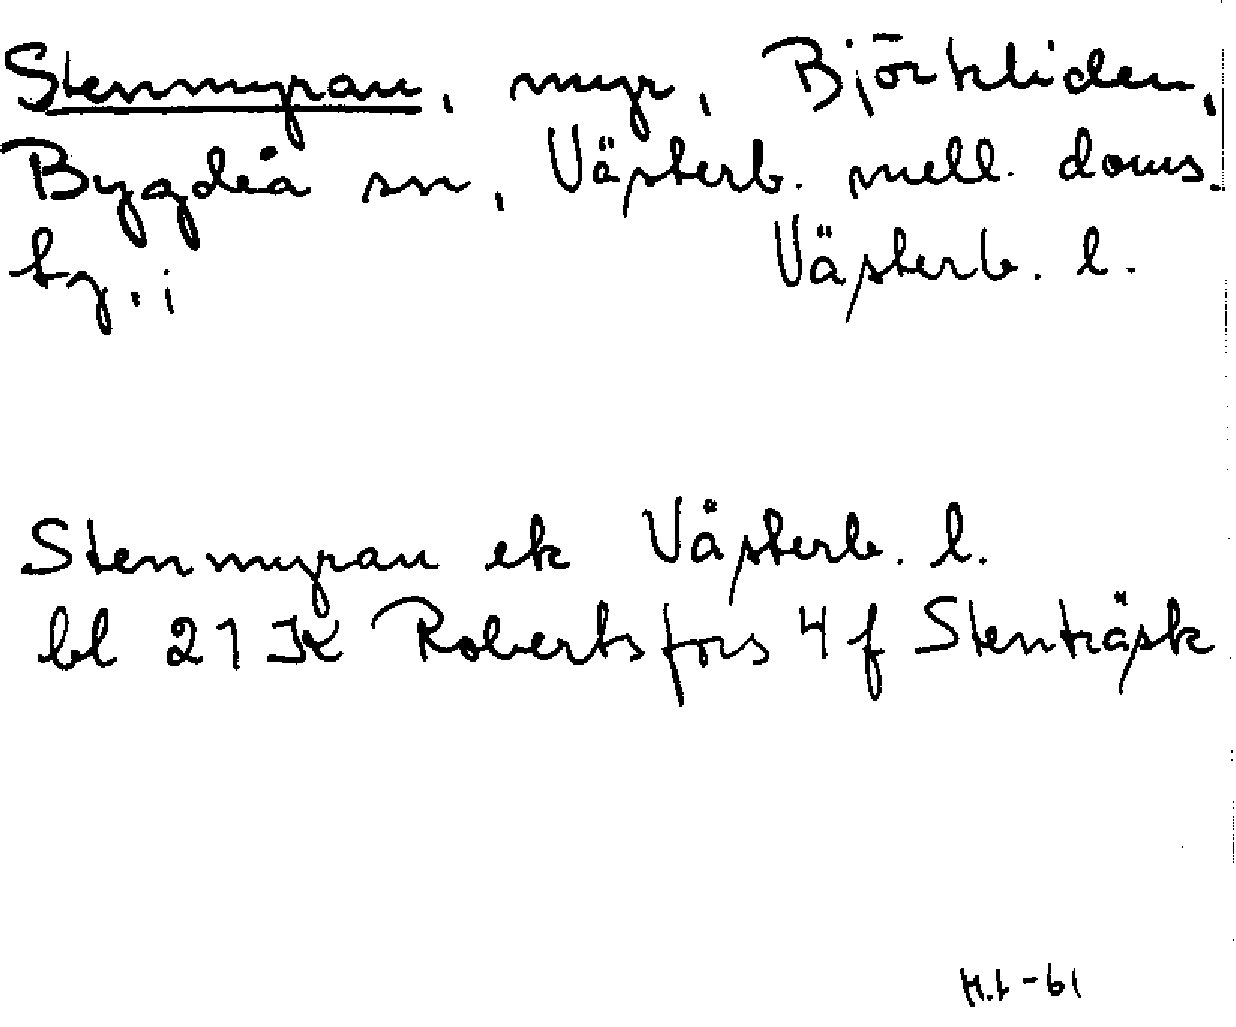 Stenmyran, myr, Björkliden,
Bygdeå sn, Västerb. mell. doms.
by.,; Västerb. l.
Stenmyran ek Västerb. l.
bl 21 JK Robertsfors 4 f Stenträsk